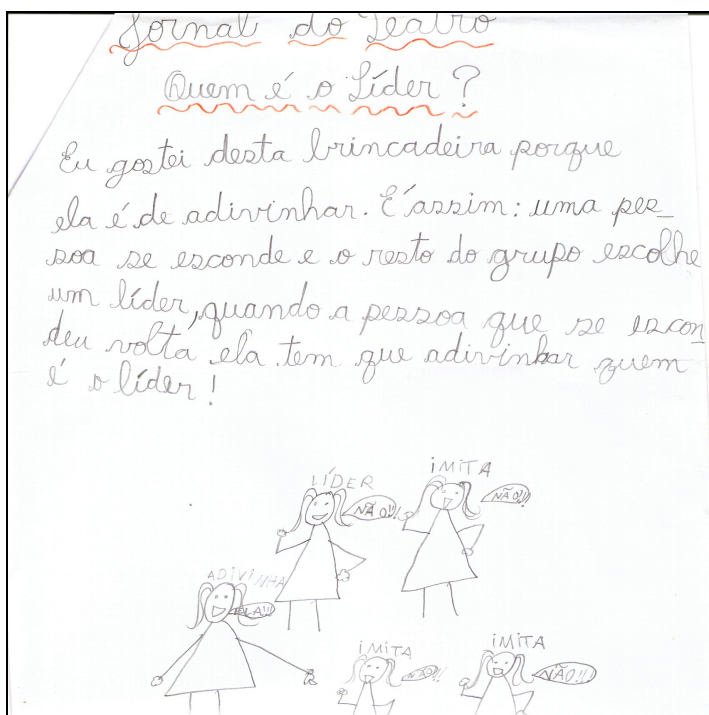 Jornal do Teatro
Quem é o Líder?
Eu gostei desta brincadeira porque
ela é de adivinhar. É assim: uma pes_
soa se esconde e o resto do grupo escolhe
um líder, quando a pessoa que se escon_
deu volta ela tem que adivinhar quem
é o líder!
IMITA
LÍDER
NÃO!!
NÃO!!
ADIVINHA
IMITA
IMITA
NÃO!!
NÃO!!